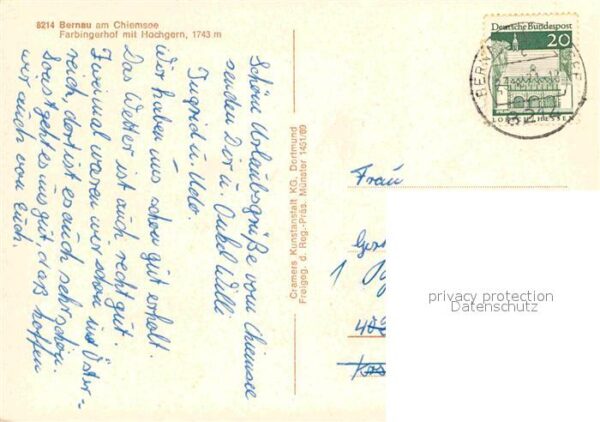 8214 Bernau am Chiemsee
Farbingerhof mit Hochgern, 1743 m
Schöne Urlaubsgrüße vom Chiemsee
senden Dir u. Onkel Willi
Ingrid u. Udo.
Wir haben uns schon gut erholt.
Das Wetter ist auch recht gut.
Zweimal waren wir schon in Öster-
reich, dort ist es auch sehr schön.
Sonst geht es uns gut, daß hoffen
wir auch von Euch.
Cramers Kunstanstalt KG, Dortmund
Freigeg. d. Reg.-Präs. Münster 1451/69
Deutsche Bundespost
20
LORSCH/HESSEN
BERNAU
8214
Frau
1
privacy protection
Datenschutz